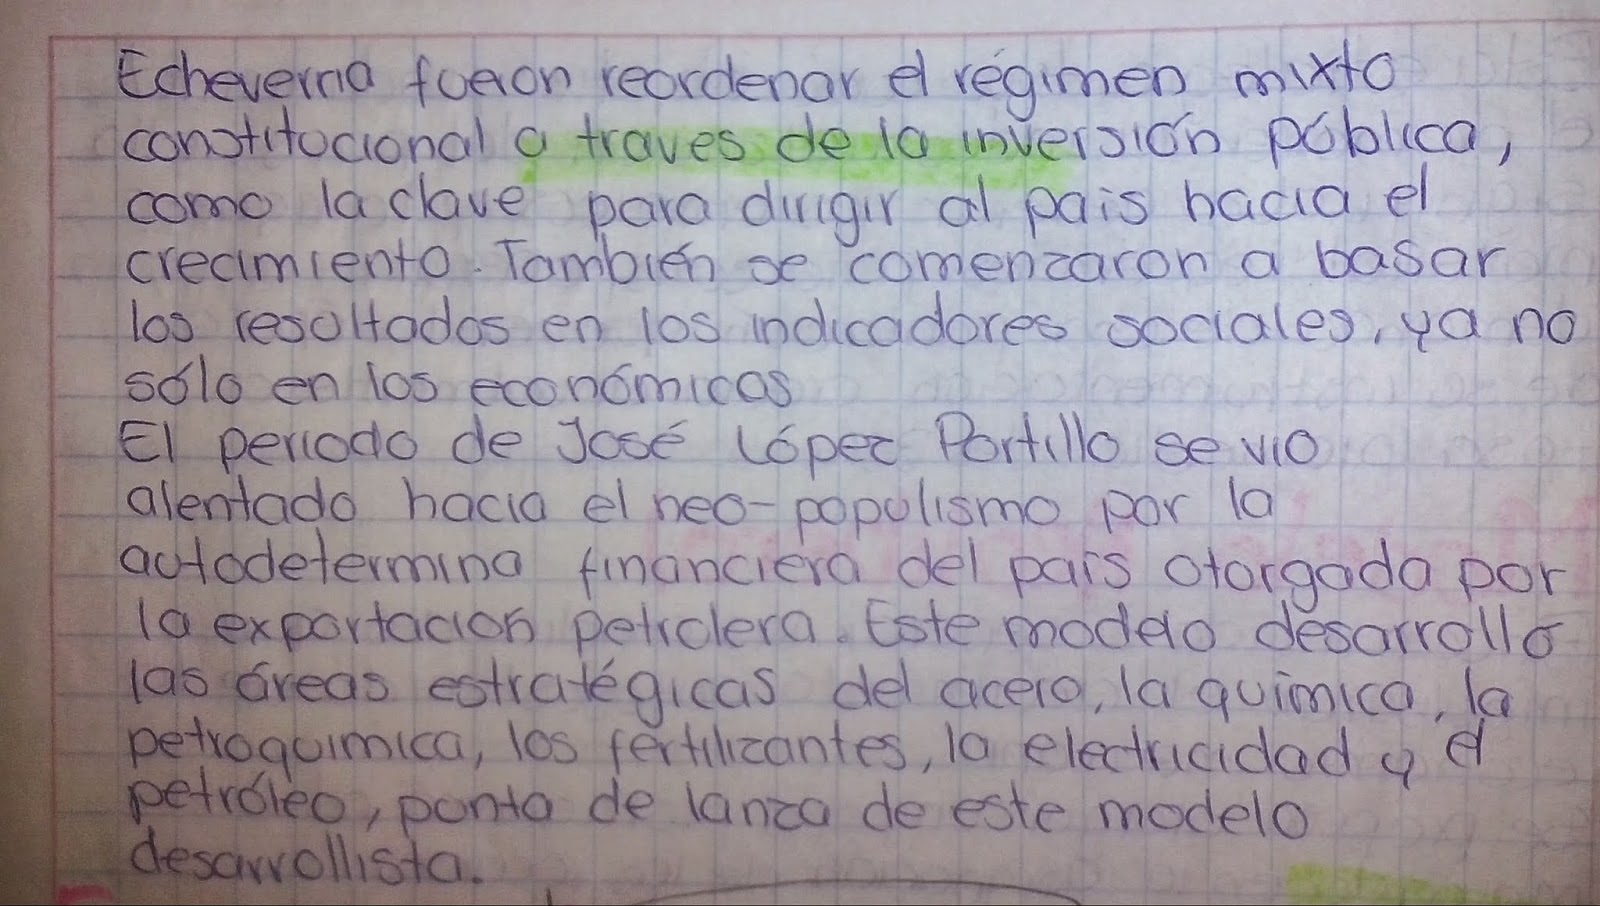 Echeverria fueron reordenar el régimen mixto
constitucional a traves de la inversión pública,
como la clave para dirigir al pais hacia el
crecimiento. También se comenzaron a basar
los resultados en los indicadores sociales, ya no
sólo en los económicos
El periodo de José López Portillo se vio
alentado hacia el neo-populismo por la
autodetermina financiera del país otorgada por
la exportación petrolera. Este modelo desarrolló
las áreas estratégicas del acero, la química, la
petroquimica, los fertilizantes, la electricidad y el
petróleo, punta de lanza de este modelo
desarrollista.